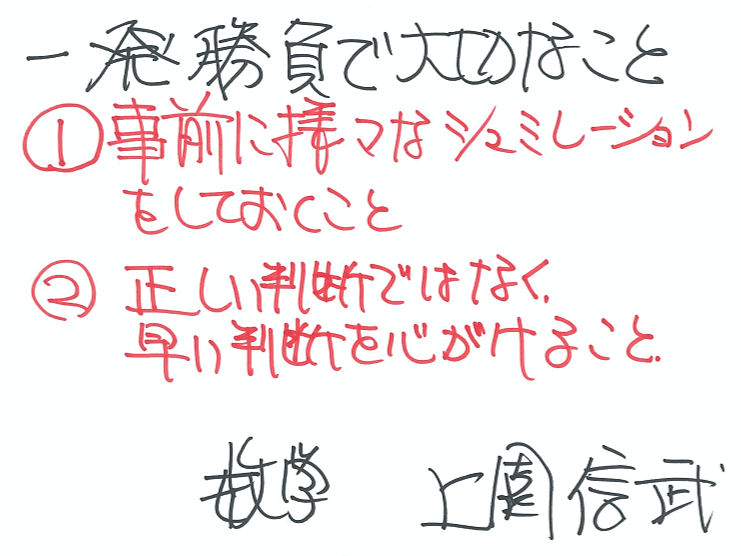 一発勝負で大切なこと
① 事前に様々なシュミレーション
をしておくこと
② 正しい判断ではなく、
早い判断を心がけること.
数学 上園信武